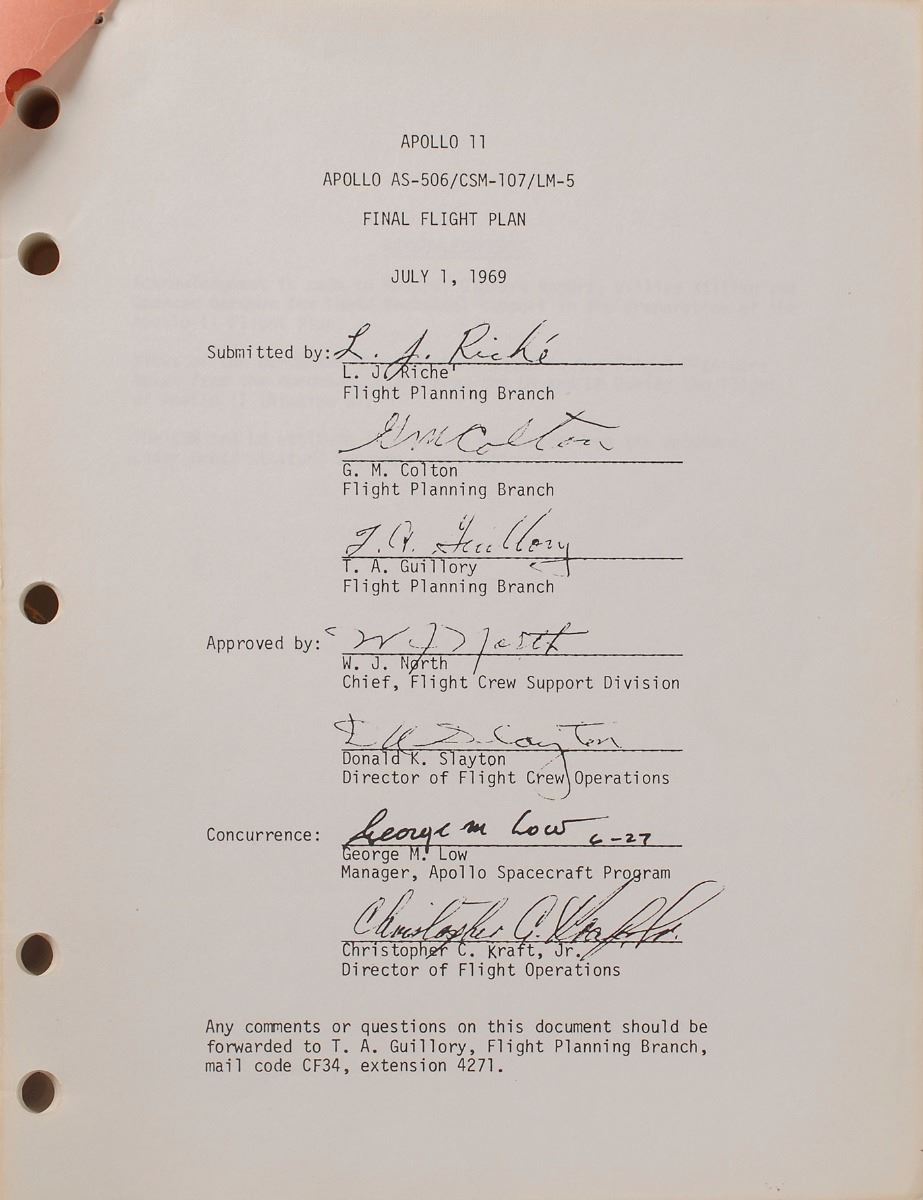 APOLLO 11
APOLLO AS-506/CSM-107/LM-5
FINAL FLIGHT PLAN
JULY 1, 1969
Submitted by: L. J. Riché
L. J. Riche'
Flight Planning Branch
GM Colton
G. M. Colton
Flight Planning Branch
T. A. Guillory
T. A. Guillory
Flight Planning Branch
Approved by: W J North
W. J. North
Chief, Flight Crew Support Division
D K Slayton
Donald K. Slayton
Director of Flight Crew Operations
Concurrence: George M Low 6-27
George M. Low
Manager, Apollo Spacecraft Program
Christopher C. Kraft, Jr.
Christopher C. Kraft, Jr.
Director of Flight Operations
Any comments or questions on this document should be
forwarded to T. A. Guillory, Flight Planning Branch,
mail code CF34, extension 4271.